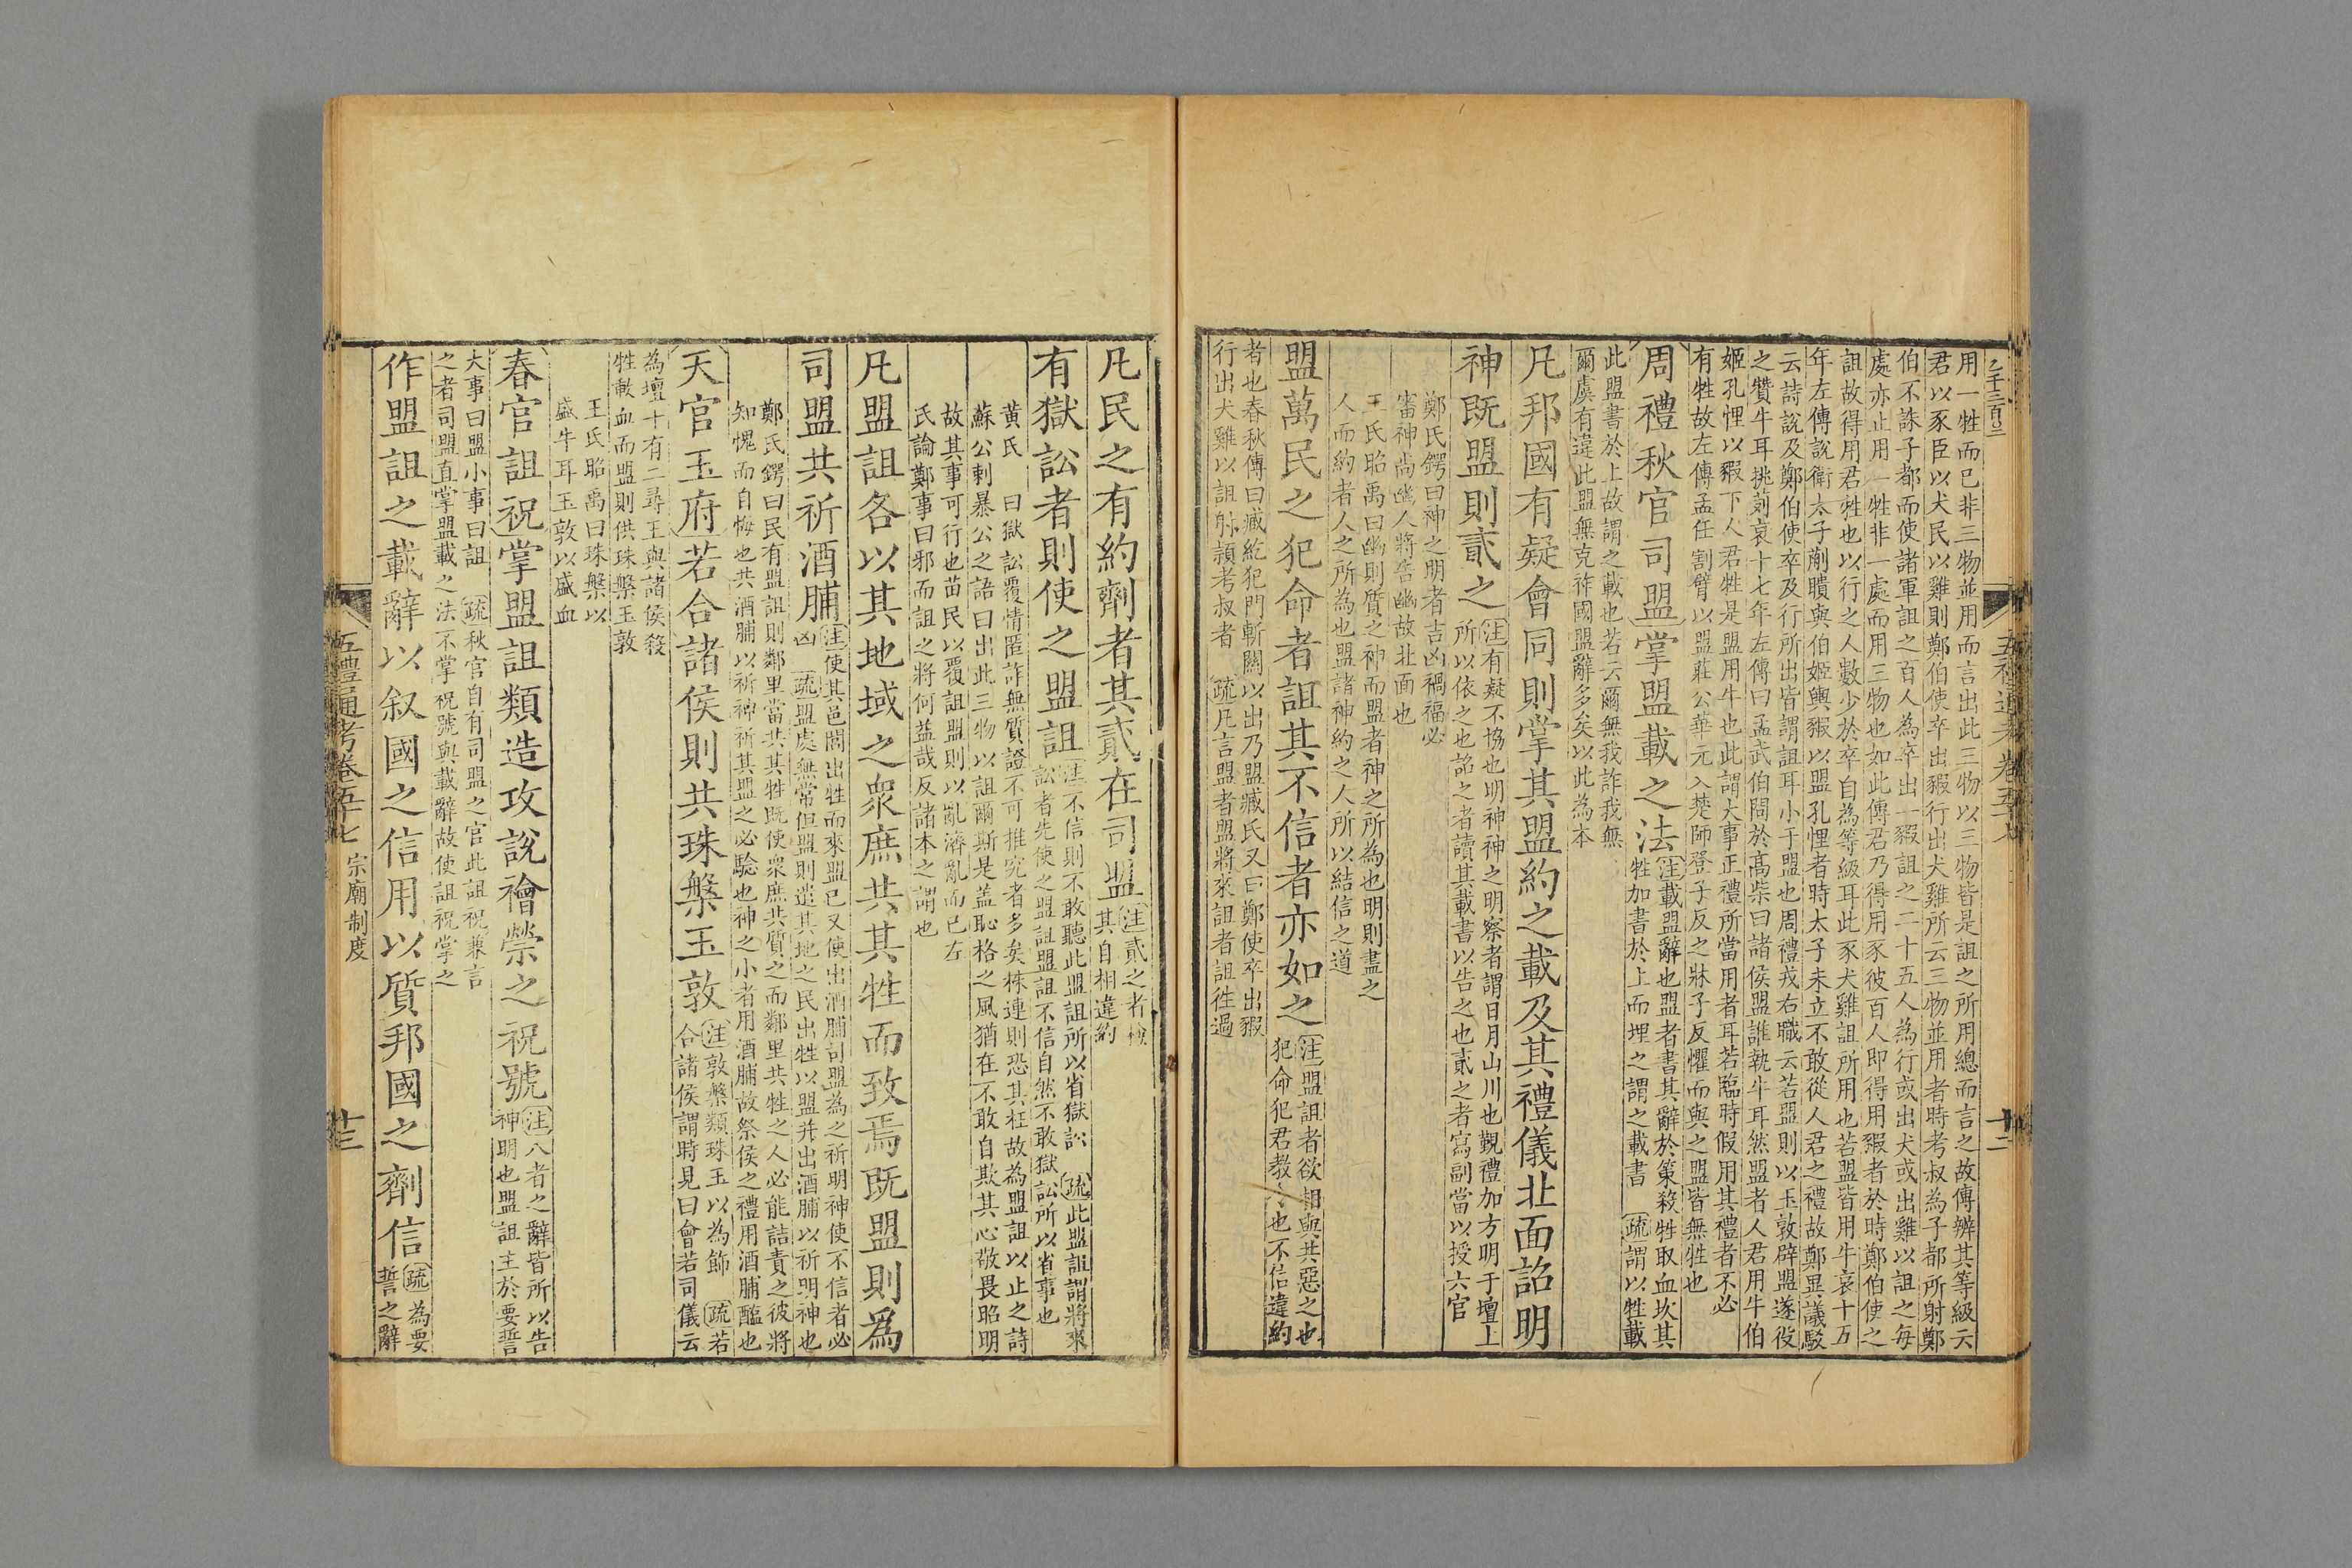 用一牲而已非三物並用而言出此三物以三物皆是詛之所用總而言之故傳辨其等級云
君以豕臣以犬民以雞則鄭伯使卒出豭行出犬雞所云三物並用者時考叔為子都所射鄭
伯不誅子都而使諸軍詛之百人為卒出一豭詛之二十五人為行或出犬或出雞以詛之每
處亦止用一牲非一處而用三物也如此傳君乃得用豕彼百人即得用豭者於時鄭伯使之
詛故得用君牲也以行之人數少於卒自為等級耳此豕犬雞詛所用也若盟皆用牛哀十五
年左傳說衛太子蒯聵與伯姬輿豭以盟孔悝者時太子未立不敢從人君之禮故鄭異議駁
云詩說及鄭伯使卒及行所出皆謂詛耳小于盟也周禮戎右職云若盟則以玉敦辟盟遂役
之贊牛耳桃茢哀十七年左傳曰孟武伯問於高柴曰諸侯盟誰執牛耳然盟者人君用牛伯
姬孔悝以豭下人君牲是盟用牛也此謂大事正禮所當用者耳若臨時假用其禮者不必
有牲故左傳孟任割臂以盟莊公華元入楚師登子反之牀子反懼而與之盟皆無牲也
周禮秋官司盟掌盟載之法注載盟辭也盟者書其辭於策殺牲取血坎其
牲加書於上而埋之謂之載書 疏謂以牲載
此盟書於上故謂之載也若云爾無我詐我無
爾虞有違此盟無克祚國盟辭多矣以此為本
凡邦國有疑會同則掌其盟約之載及其禮儀北面詔明
神既盟則貳之注有疑不協也明神神之明察者謂日月山川也覲禮加方明于壇上
所以依之也詔之者讀其載書以告之也貳之者寫副當以授六官
鄭氏鍔曰神之明者吉凶禍福必
審神尚幽人將告幽故北面也
王氏昭禹曰幽則質之神而盟者神之所為也明則盡之
人而約者人之所為也盟諸神約之人所以結信之道
盟萬民之犯命者詛其不信者亦如之注盟詛者欲相與共惡之也
犯命犯君教令也不信違約
者也春秋傳曰臧紇犯門斬關以出乃盟臧氏又曰鄭使卒出豭
行出犬雞以詛射潁考叔者 疏凡言盟者盟將來詛者詛徃過
乙千三百三
五禮通考卷五十七
十二
凡民之有約劑者其貳在司盟注貳之者檢
其自相違約
有獄訟者則使之盟詛注不信則不敢聽此盟詛所以省獄訟 疏此盟詛謂將來
訟者先使之盟詛盟詛不信自然不敢獄訟所以省事也
黃氏 曰獄訟覆情匿詐無質證不可推究者多矣株連則恐其枉故為盟詛以止之詩
蘇公刺暴公之語曰出此三物以詛爾斯是蓋恥格之風猶在不敢自欺其心敬畏昭明
故其事可行也苗民以覆詛盟則以亂濟亂而已左
氏論鄭事曰邪而詛之將何益哉反諸本之謂也
凡盟詛各以其地域之眾庶共其牲而致焉既盟則爲
司盟共祈酒脯注使其邑閭出牲而來盟已又使出酒脯司盟為之祈明神使不信者必
凶 疏盟處無常但盟則遣其地之民出牲以盟并出酒脯以祈明神也
鄭氏鍔曰民有盟詛則鄰里當共其牲既使眾庶共質之而鄰里共牲之人必能詰責之彼將
知愧而自悔也共酒脯以祈神祈其盟之必驗也神之小者用酒脯故祭侯之禮用酒脯醢也
天官玉府若合諸侯則共珠槃玉敦注敦槃類珠玉以為飾 疏若
合諸侯謂時見曰會若司儀云
為壇十有二尋王與諸侯殺
牲歃血而盟則供珠槃玉敦
王氏昭禹曰珠槃以
盛牛耳玉敦以盛血
春官詛祝掌盟詛類造攻說禬禜之祝號注八者之辭皆所以告
神明也盟詛主於要誓
大事曰盟小事曰詛 疏秋官自有司盟之官此詛祝兼言
之者司盟直掌盟載之法不掌祝號與載辭故使詛祝掌之
作盟詛之載辭以叙國之信用以質邦國之劑信疏為要
誓之辭
五禮通考卷五十七 宗廟制度
十三